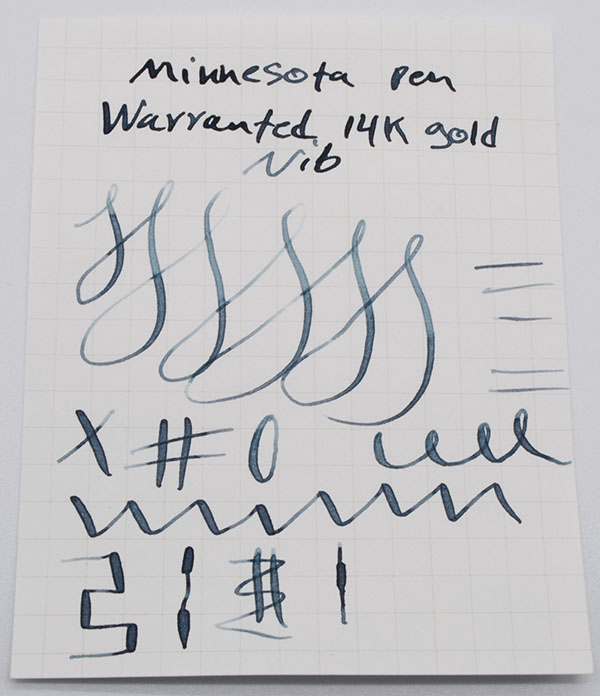 Minnesota Pen
Warranted 14K gold
Nib
X # 0 elll